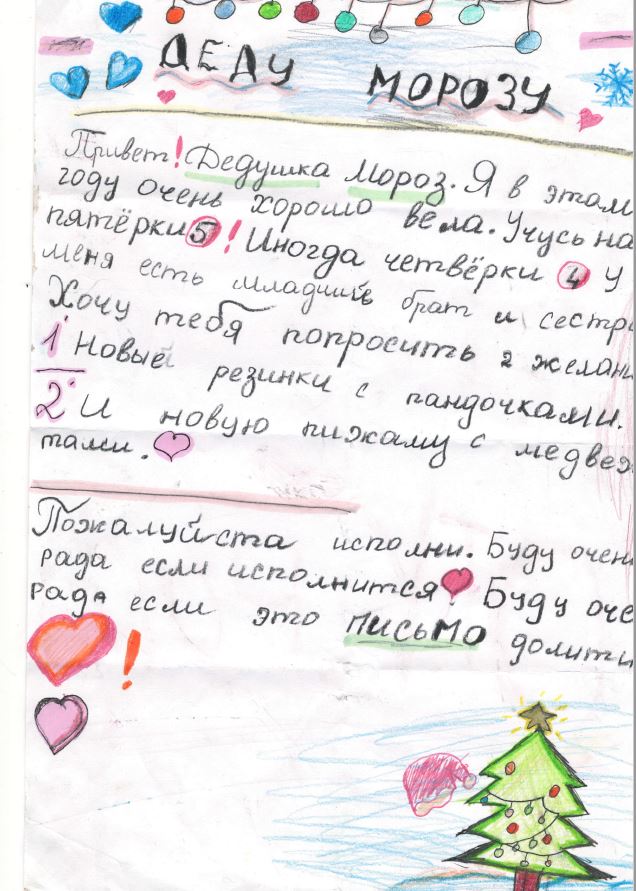 ДЕДУ МОРОЗУ
Привет! Дедушка Мороз. Я в этам
году очень хорошо вела. Учусь на
пятёрки 5! Иногда четвёрки 4 У
меня есть младший брат и сестр
Хочу тебя попросить 2 желани
1. Новые резинки с пандочками.
2. И новую пижаму с медвеж
тами.
Пожалуйста исполни. Буду очен
рада если исполнится Буду оче
рада если это письмо долити
!